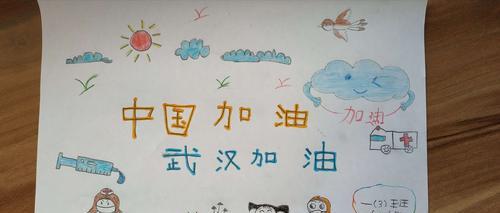 加油
中国加油
武汉加油
一(3)